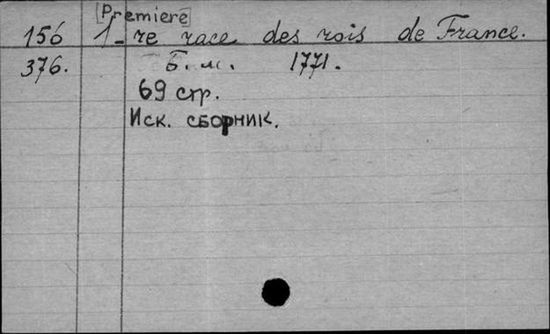 [Premiere]
156 1-re race des rois de France.
376. Б. м. 1771.
69 стр.
Иск. сборник.